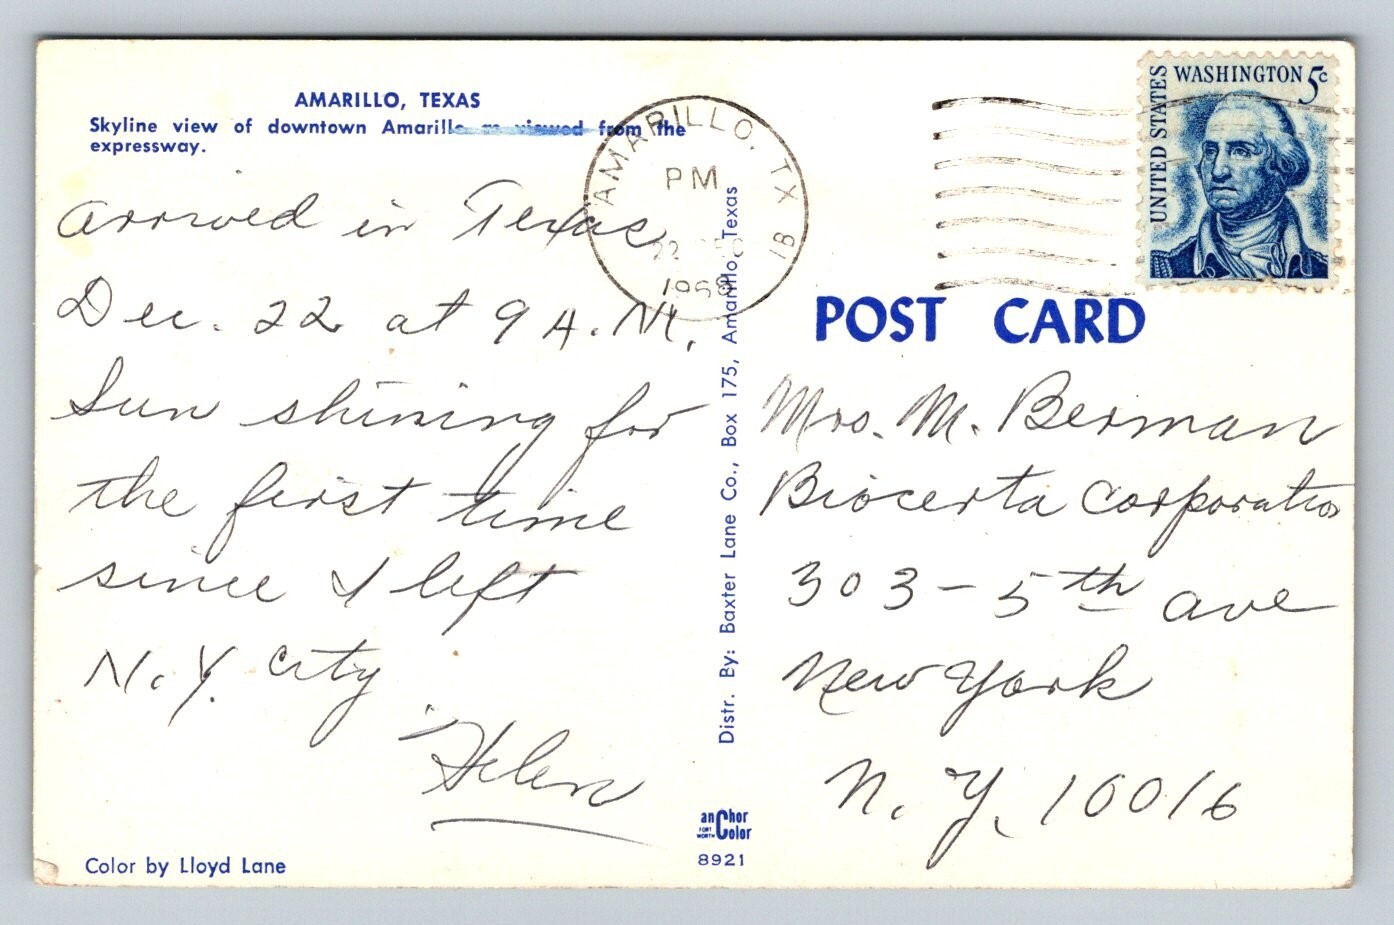 AMARILLO, TEXAS
Skyline view of downtown Amarillo as viewed from the
expressway.
arrived in Texas
Dec. 22 at 9 A.M.
Sun shining for
the first time
since I left
N.Y. City
Helen
Color by Lloyd Lane
AMARILLO, TX
PM
22 DEC
1968
Distr. By: Baxter Lane Co., Box 175, Amarillo, Texas
anChor
FORT WORTH Color
8921
UNITED STATES
WASHINGTON 5c
POST CARD
Mrs. M. Berman
Biocerta Corporation
303 - 5th ave
New York
N.Y. 10016